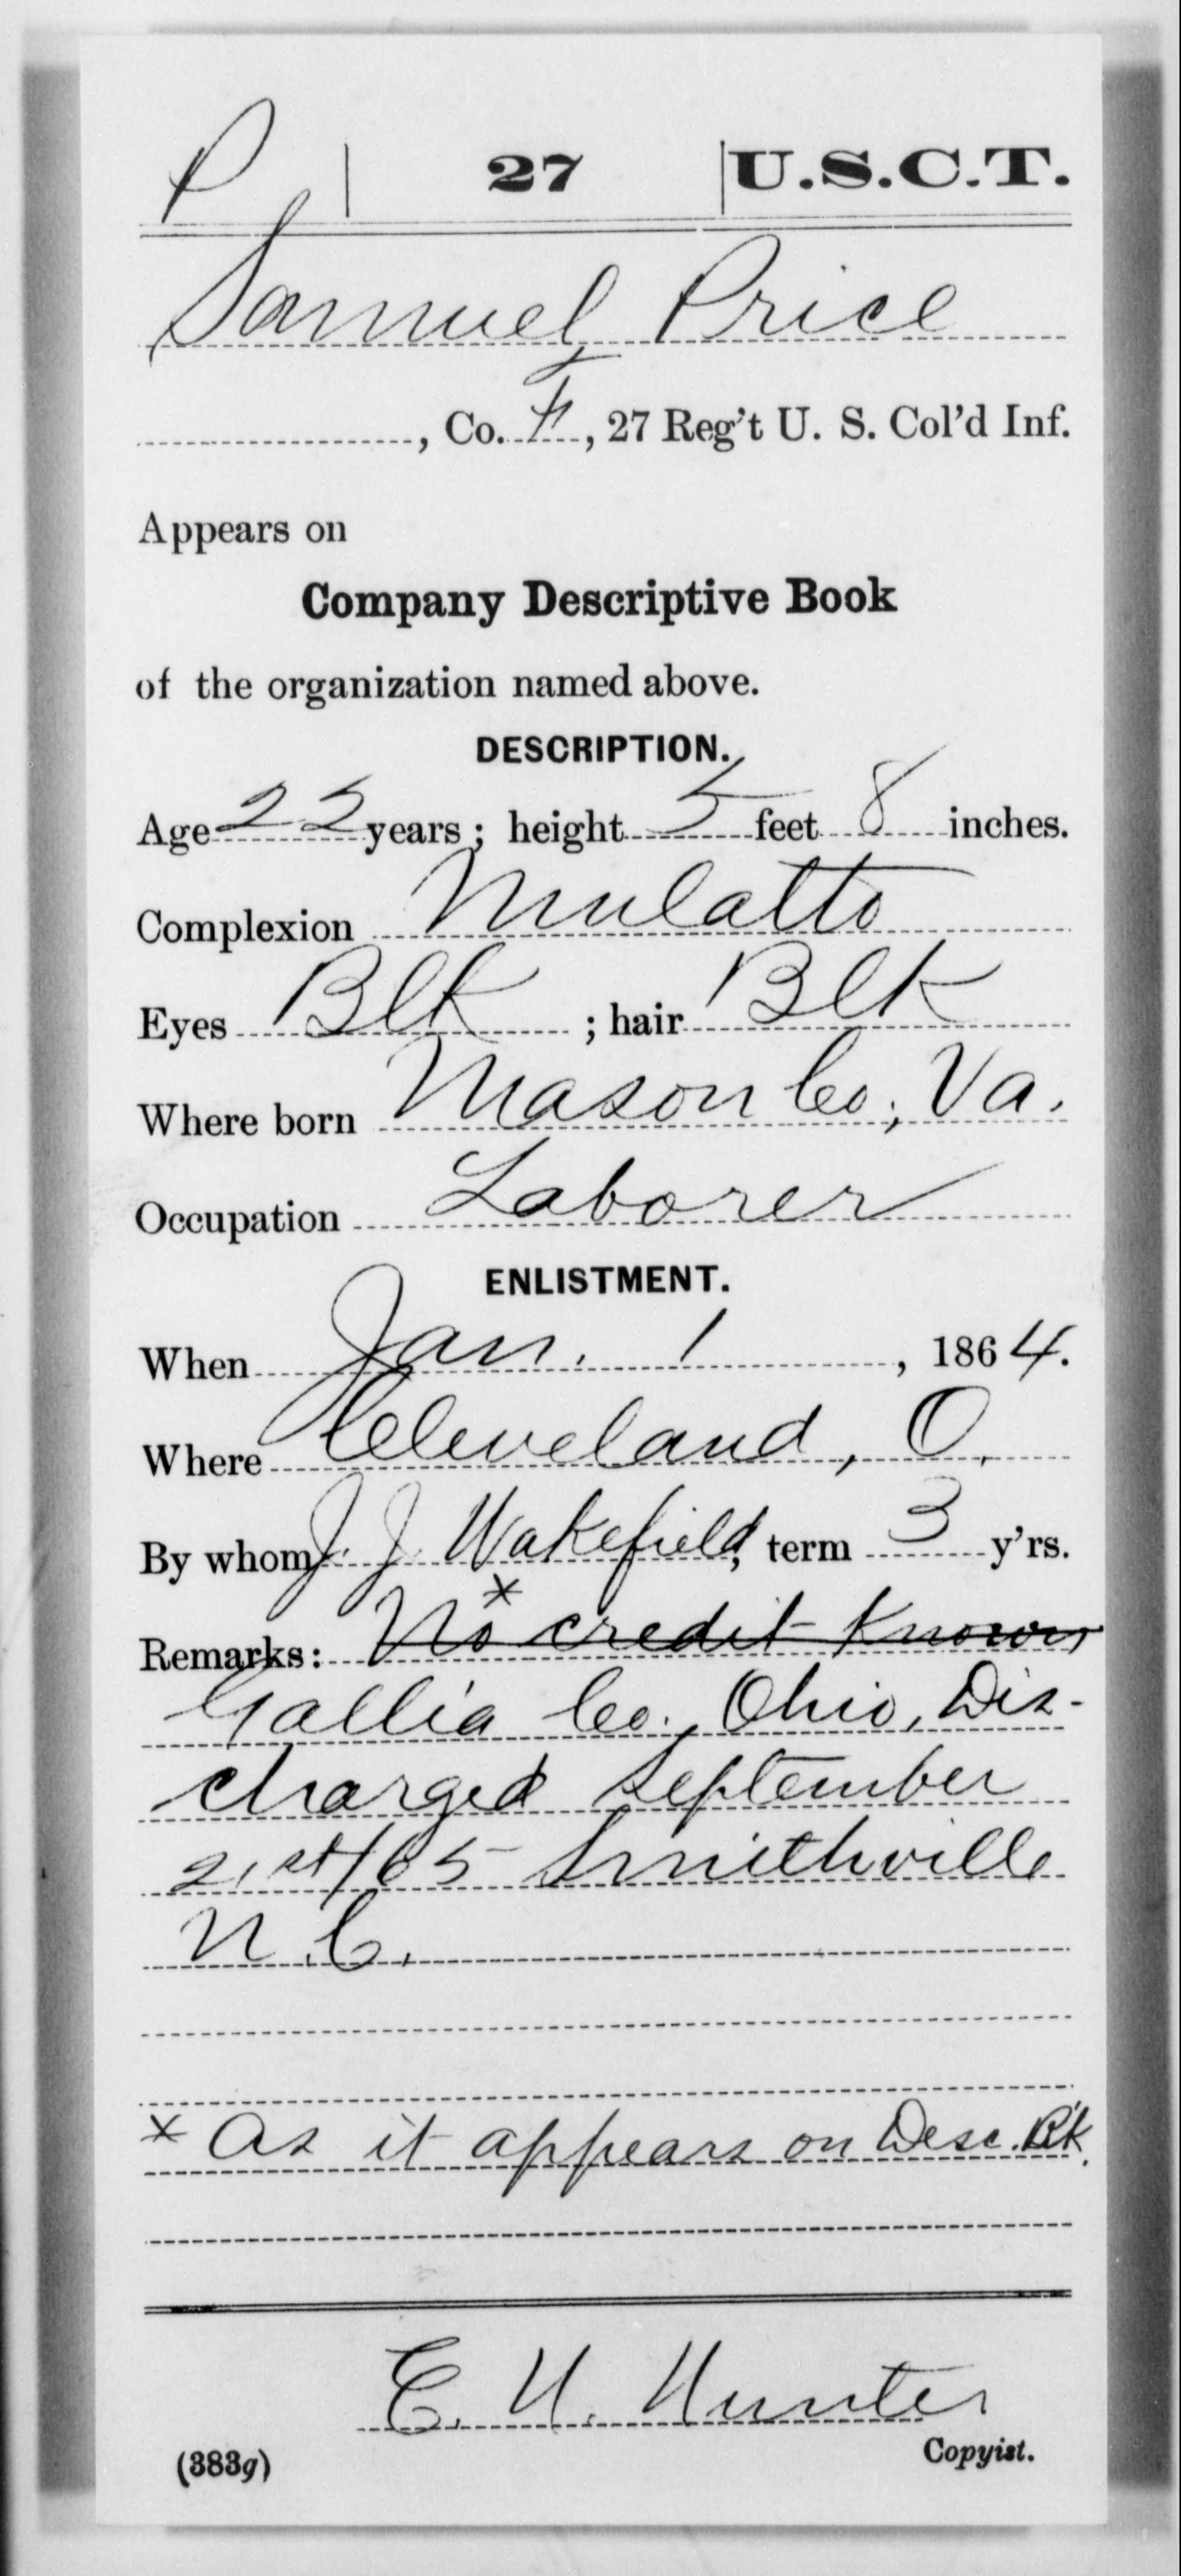 P | 27 | U.S.C.T.
Samuel Price
, Co. F, 27 Reg't U. S. Col'd Inf.
Appears on
Company Descriptive Book
of the organization named above.
DESCRIPTION.
Age 22 years; height 5 feet 8 inches.
Complexion Mulatto
Eyes Blk ; hair Blk
Where born Mason Co., Va.
Occupation Laborer
ENLISTMENT.
When Jan. 1, 1864.
Where Cleveland, O.
By whom J. J. Wakefield, term 3 y'rs.
Remarks: No * credit Known
Gallia Co., Ohio, Dis-
charged September
21st/65 Smithville
N.C.
* As it appears on Desc. Bk.
Hunter
Copyist.
(383g)